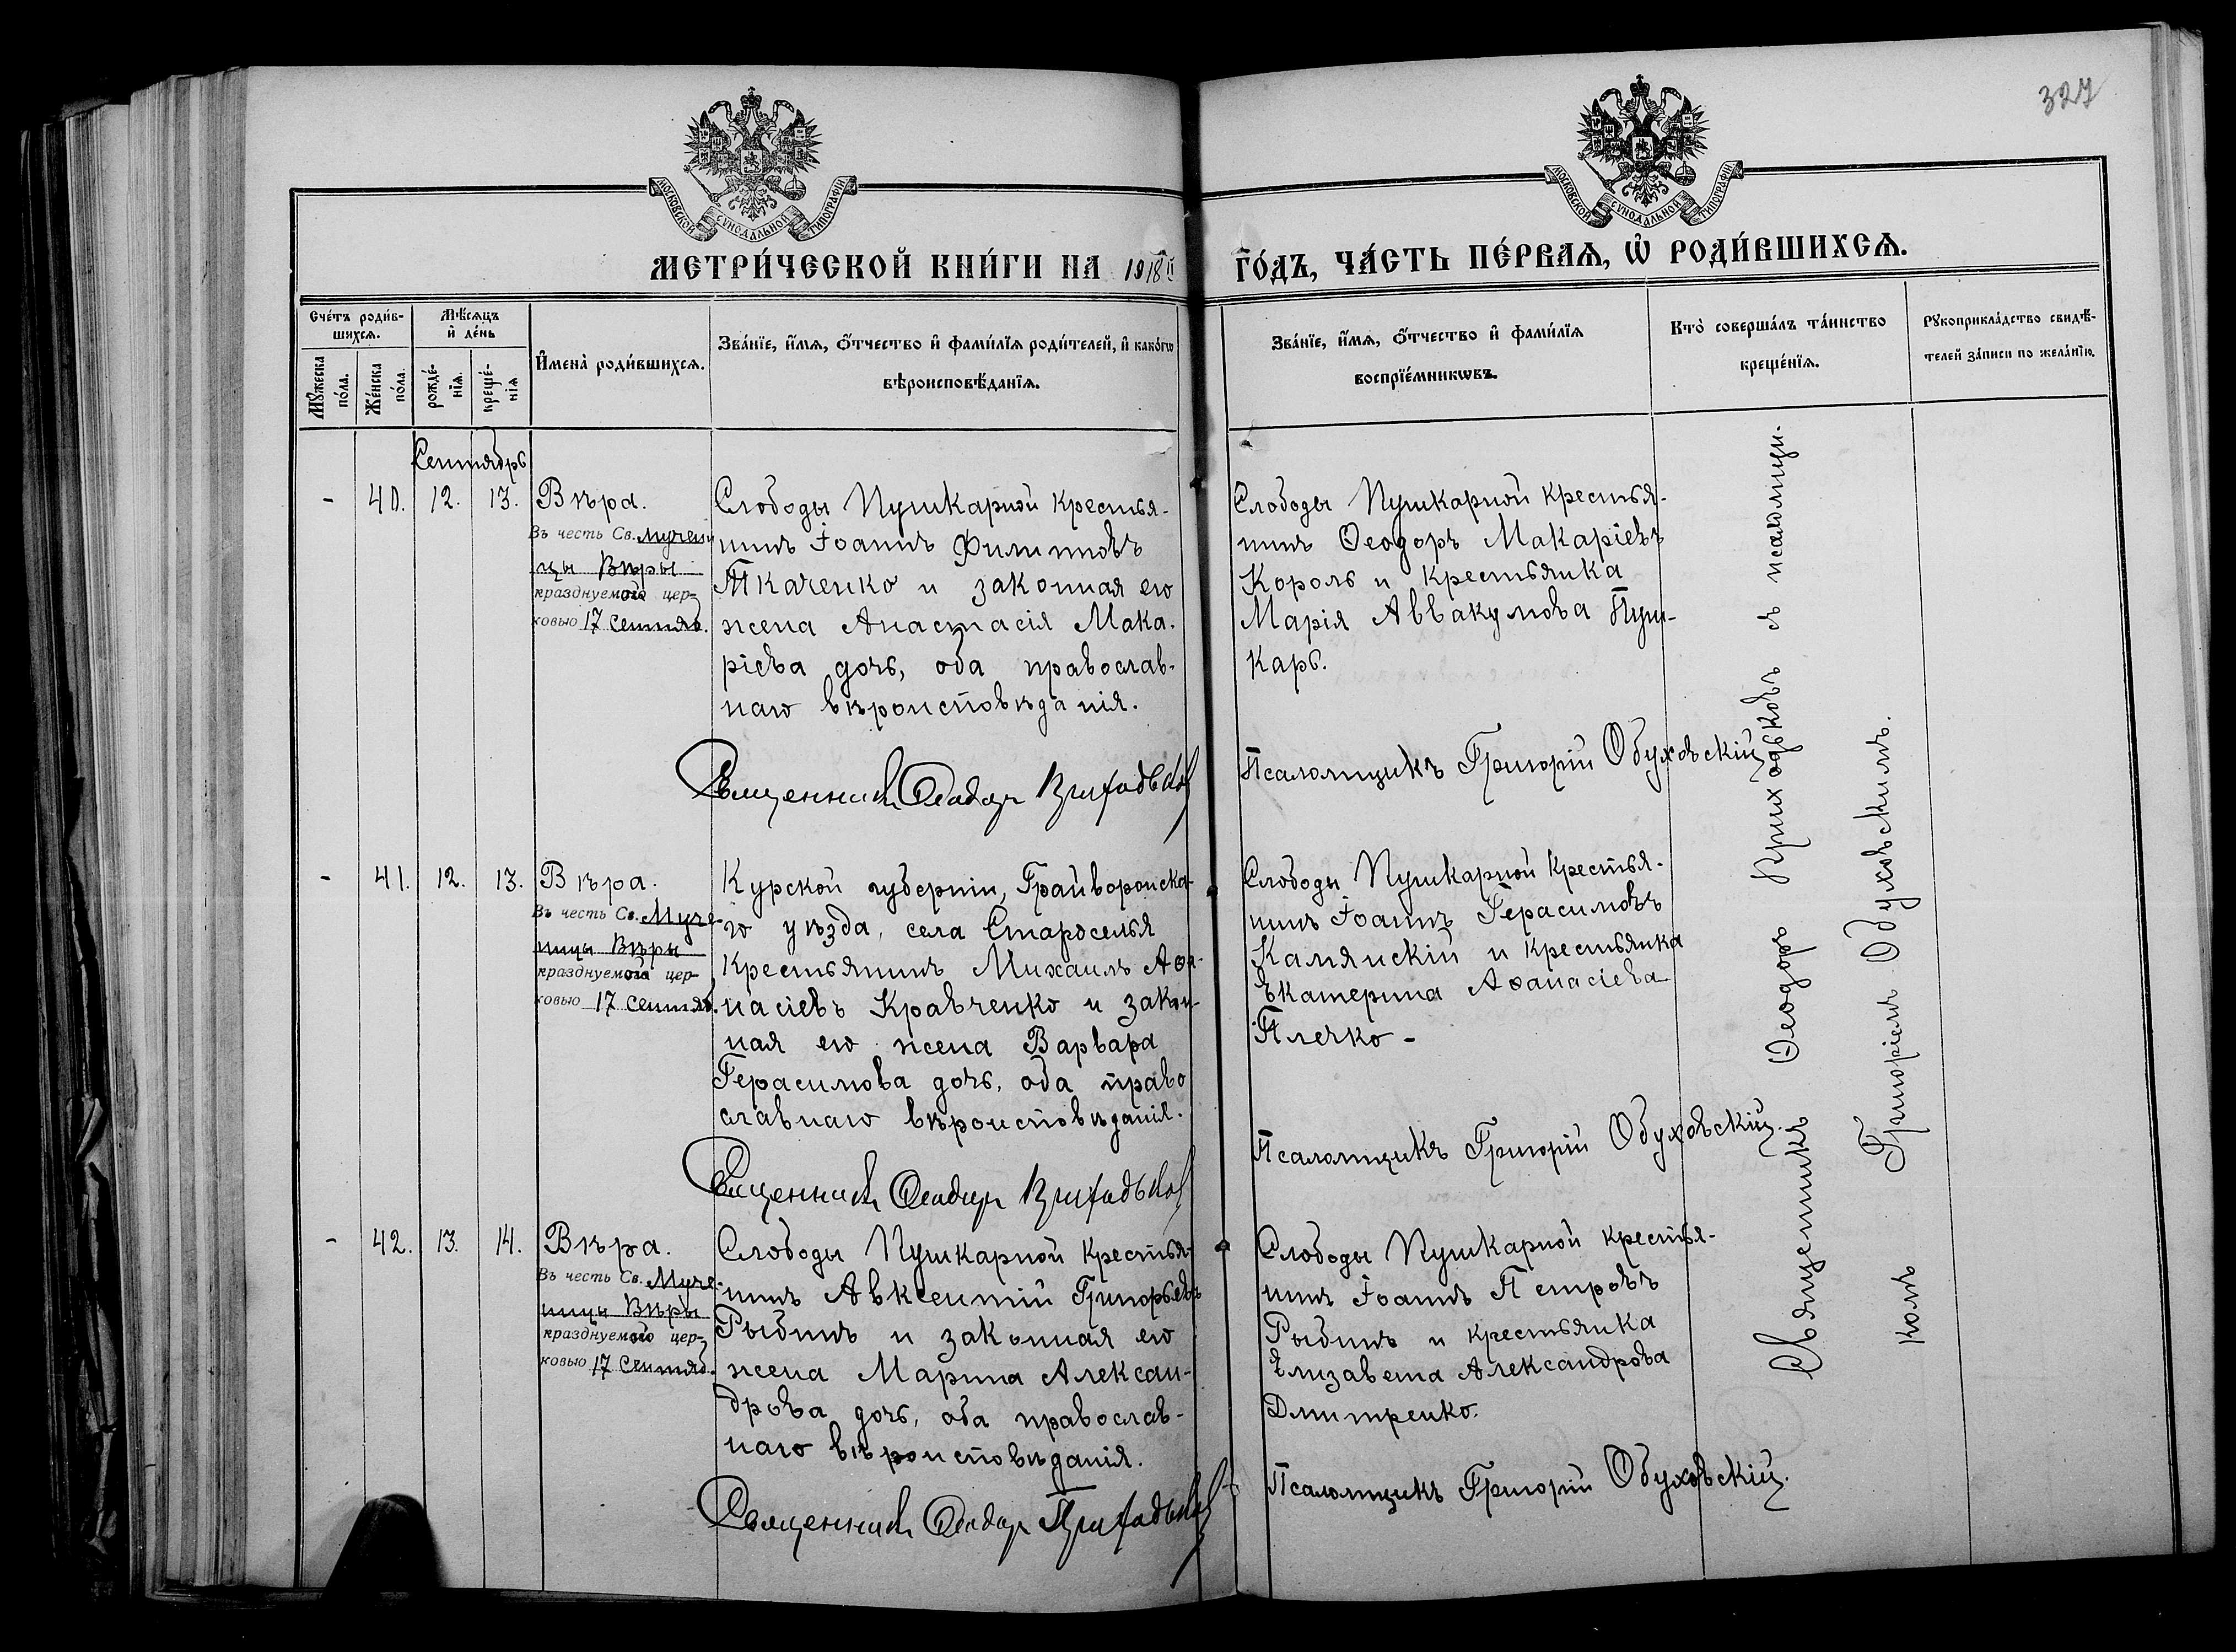 327
МОСКОВСКОЙ СѴНОДАЛЬНОЙ ТИПОГРАФІИ
МОСКОВСКОЙ СѴНОДАЛЬНОЙ ТИПОГРАФІИ
МЕТРИ́ЧЕСКОЙ КНИ́ГИ НА 1918й
ГО́ДЪ, ЧА́СТЬ ПЕ́РВАѦ, Ѽ РОДИ́ВШИХСѦ.
Сче́тъ роди́в-
шихсѧ.
Мꙋ́жеска по́ла.
Же́нска по́ла.
Мѣ́сѧцъ
и҆ де́нь
рожде́-
нїѧ.
креще́-
нїѧ
И҆мена̀ роди́вшихсѧ.
Зва́нїе, и҆́мѧ, ѻ҆́тчество и҆ фами́лїѧ роди́телей, и҆ како́гѡ
вѣроисповѣ́данїѧ.
Зва́нїе, и҆́мѧ, ѻ҆́тчество и҆ фами́лїѧ
воспрїе́мникѡвъ.
Кто̀ соверша́лъ та́инство
креще́нїѧ.
Рꙋкоприкла́дство свидѣ́-
телей за́писи по жела́нїю.
Сентябрь
- 40. 12. 13.
Вѣра.
Въ честь Св. мучени
цы Вѣры
празднуемой цер-
ковью 17 Сентяб.
Слободы Пушкарной крестья-
нинъ Іоаннъ Филипповъ
Ткаченко и законная его
жена Анастасія Мака-
ріева дочь, оба православ-
наго вѣроисповѣданія.
Священникъ Ѳеодоръ Приходьков
Слободы Пушкарной крестья-
нинъ Ѳеодоръ Макаріевъ
Король и крестьянка
Марія Аввакумова Пуш-
карь.
Псаломщикъ Григорій Обуховскій
- 41. 12. 13.
Вѣра.
Въ честь Св. Муче-
ницы Вѣры
празднуемой цер-
ковью 17 Сентяб.
Курской губерніи, Грайворонска-
го уѣзда, села Староселья
крестьянинъ Михаилъ Аѳа-
насіевъ Кравченко и закон-
ная его жена Варвара
Герасимова дочь, оба право
славнаго вѣроисповѣданія.
Священникъ Ѳеодоръ Приходьков
Слободы Пушкарной крестья-
нинъ Іоаннъ Герасимовъ
Камянскій и крестьянка
Екатерина Аѳанасіева
Плечко -
Псаломщикъ Григорій Обуховскій.
- 42. 13. 14.
Вѣра.
Въ честь Св. Муче-
ницы Вѣры
празднуемой цер-
ковью 17 Сентяб.
Слободы Пушкарной крестья-
нинъ Авксентій Григорьевъ
Рыбинъ и законная его
жена Марина Алексан-
дрова дочь, оба православ-
наго вѣроисповѣданія.
Священникъ Ѳеодоръ Приходьков
Слободы Пушкарной крестья-
нинъ Іоаннъ Петровъ
Рыбинъ и крестьянка
Елизавета Александрова
Дмитренко.
Псаломщикъ Григорій Обуховскій.
Священникъ Ѳеодоръ Приходьковъ съ псаломщи-
комъ Григоріемъ Обуховскимъ.